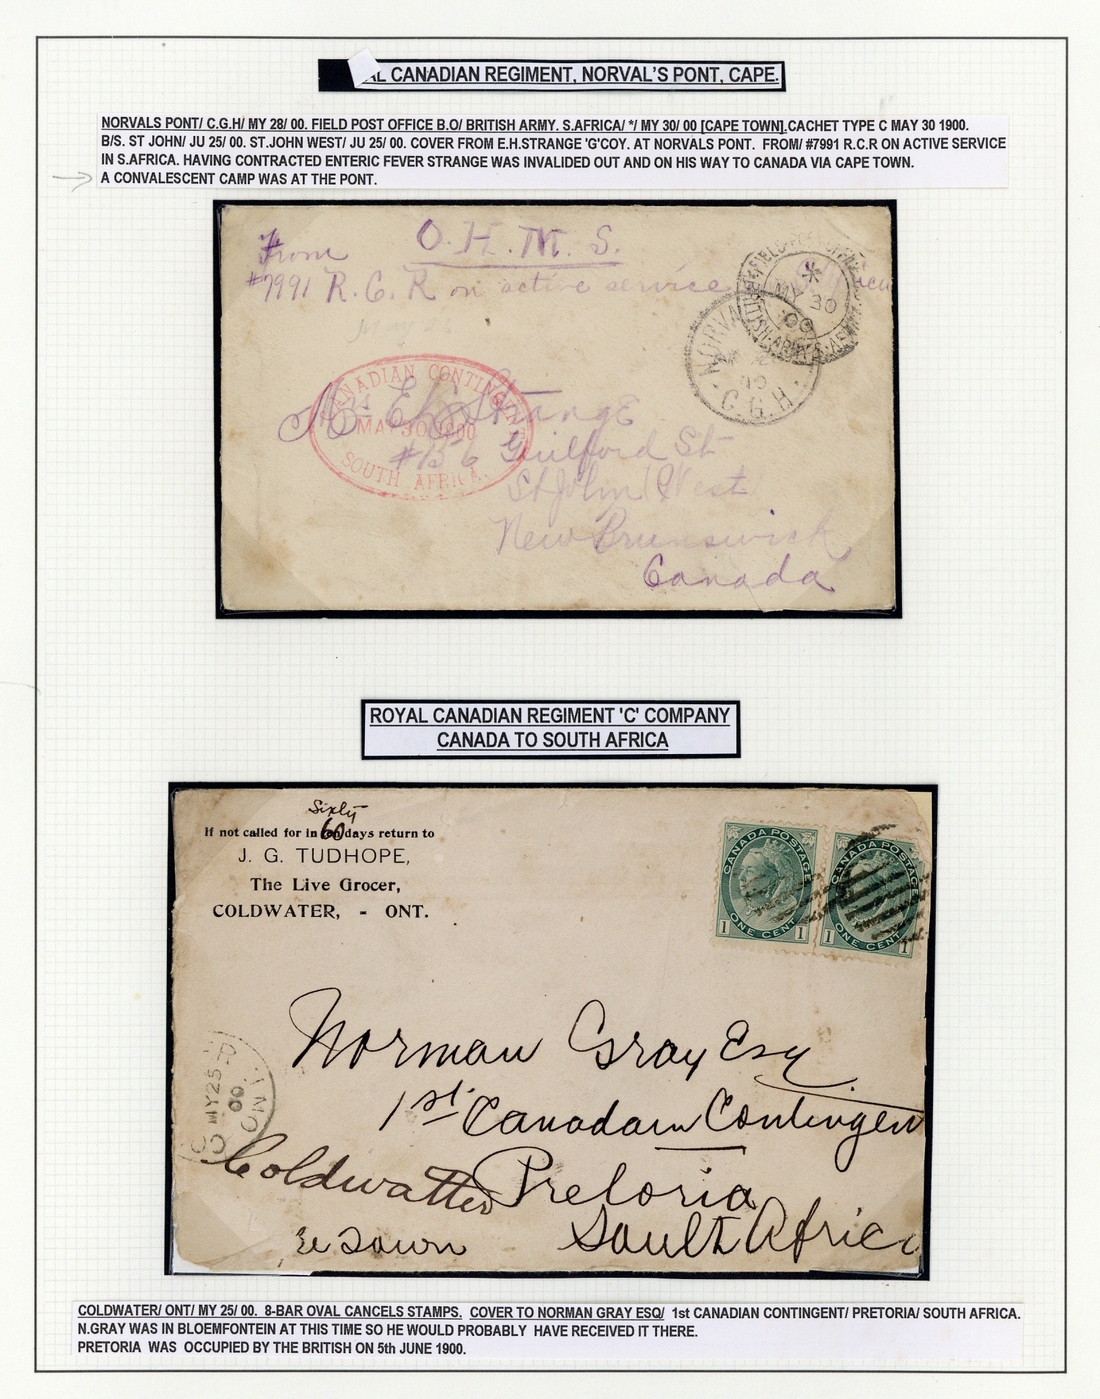 AL CANADIAN REGIMENT, NORVAL'S PONT, CAPE.
NORVALS PONT/ C.G.H/ MY 28/ 00. FIELD POST OFFICE B.O/ BRITISH ARMY. S.AFRICA/ */ MY 30/ 00 [CAPE TOWN].CACHET TYPE C MAY 30 1900.
B/S. ST JOHN/ JU 25/ 00. ST.JOHN WEST/ JU 25/ 00. COVER FROM E.H.STRANGE 'G'COY. AT NORVALS PONT. FROM/ #7991 R.C.R ON ACTIVE SERVICE
IN S.AFRICA. HAVING CONTRACTED ENTERIC FEVER STRANGE WAS INVALIDED OUT AND ON HIS WAY TO CANADA VIA CAPE TOWN.
A CONVALESCENT CAMP WAS AT THE PONT.
O.H.M.S.
From
#7991 R.C.R on active service
FIELD
*
MY 30
00
BRITISH ARMY S.
NORVA
00
C.G.H.
CANADIAN CONTINGENT
MAY 30 1900
SOUTH AFRICA.
Mrs E H Strange
#156 Guilford St
St John (West)
New Brunswick
Canada
ROYAL CANADIAN REGIMENT 'C' COMPANY
CANADA TO SOUTH AFRICA
Sixty
60
If not called for in days return to
J. G. TUDHOPE,
The Live Grocer,
COLDWATER, - ONT.
CANADA POSTAGE
ONE CENT
1 1
CANADA POSTAGE
ONE CENT
1 1
Norman Gray Esq
1st Canadain Contingen
Pretoria
South Africa
Coldwatter
MY 25
00
ONT
COLDWATER/ ONT/ MY 25/ 00. 8-BAR OVAL CANCELS STAMPS. COVER TO NORMAN GRAY ESQ/ 1st CANADIAN CONTINGENT/ PRETORIA/ SOUTH AFRICA.
N.GRAY WAS IN BLOEMFONTEIN AT THIS TIME SO HE WOULD PROBABLY HAVE RECEIVED IT THERE.
PRETORIA WAS OCCUPIED BY THE BRITISH ON 5th JUNE 1900.